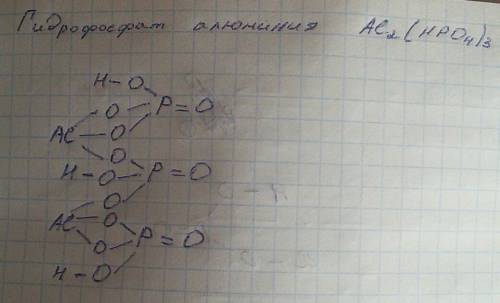 Гидрофосфат алюминия Al₂(HPO₄)₃
H-O
O P=O
Al O
O
H-O P=O
O
Al O P=O
O
H-O